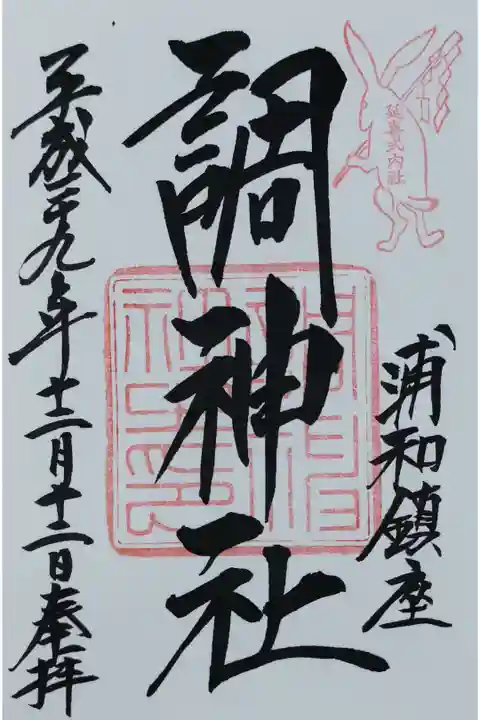 延喜式内社
浦和鎮座
調神社
調神社之印
平成二十九年十二月十二日奉拝